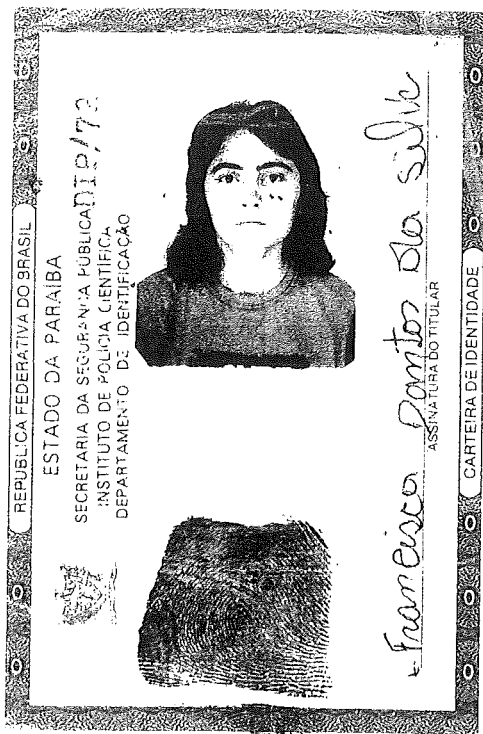 REPÚBLICA FEDERATIVA DO BRASIL
ESTADO DA PARAÍBA
SECRETARIA DA SEGURANÇA PÚBLICA
INSTITUTO DE POLÍCIA CIENTÍFICA
DEPARTAMENTO DE IDENTIFICAÇÃO
Francisca Dantas da Silva
ASSINATURA DO TITULAR
CARTEIRA DE IDENTIDADE